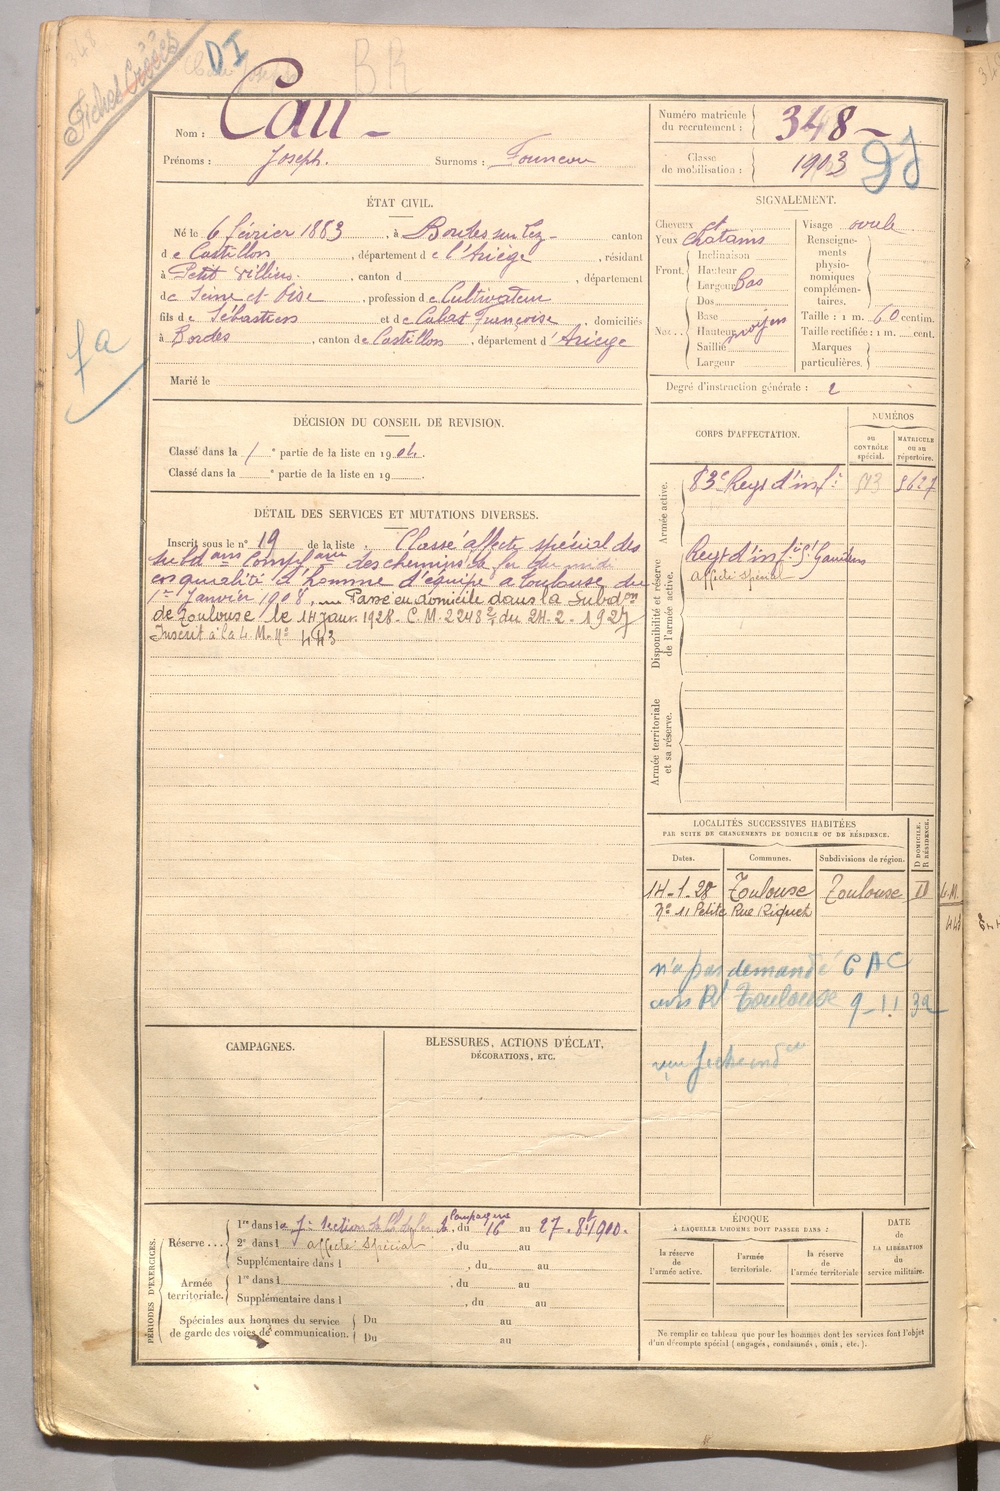 348
Fiches Créées
DI
BR
Nom : Cau
Prénoms : Joseph. Surnoms : Founcou
Numéro matricule du recrutement : 348
Classe de mobilisation : 1903
ÉTAT CIVIL.
Né le 6 février 1883, à Bordes sur Lez canton
de Castillon, département de l'Ariège, résidant
à Petit Villiers, canton d , département
de Seine et Oise, profession de Cultivateur
fils de Sébastien et de Cabas Françoise, domiciliés
à Bordes, canton de Castillon, département d'Ariège
Marié le
SIGNALEMENT.
Cheveux et
Yeux chatains
Front. Inclinaison
Hauteur
Largeur Bas
Nez.. Dos
Base
Hauteur moyen
Saillie
Largeur
Visage ovale
Renseignements physionomiques complémentaires.
Taille : 1 m. 60 centim.
Taille rectifiée : 1 m. cent.
Marques particulières.
Degré d'instruction générale : 2
DÉCISION DU CONSEIL DE REVISION.
Classé dans la 1 e partie de la liste en 1904.
Classé dans la e partie de la liste en 19
DÉTAIL DES SERVICES ET MUTATIONS DIVERSES.
Inscrit sous le n° 19 de la liste. Classé affecté spécial des
subd ons Comp ie des chemins de fer du midi
en qualité d'homme d'équipe à Toulouse du
1er Janvier 1908. Passé en domicile dans la Subd on
de Toulouse le 14 Janv. 1928 - C.M. 2248 2/4 du 24-2-1927
Inscrit à la L. M. n° 443
CORPS D'AFFECTATION.
NUMÉROS
au CONTRÔLE spécial.
MATRICULE ou au répertoire.
Armée active.
83e Regt d'inf ie 8627
Disponibilité et réserve de l'armée active.
Regt d'inf ie St Gaudens
affecté spécial
Armée territoriale et sa réserve.
LOCALITÉS SUCCESSIVES HABITÉES
PAR SUITE DE CHANGEMENTS DE DOMICILE OU DE RÉSIDENCE.
Dates. Communes. Subdivisions de région. D DOMICILE. R RÉSIDENCE.
14-1-28 Toulouse Toulouse D L.M.
N° 11 Petite Rue Riquet 443
n'a pas demandé CAC
avis R t Toulouse 9-11 32
CAMPAGNES.
BLESSURES, ACTIONS D'ÉCLAT,
DÉCORATIONS, ETC.
PÉRIODES D'EXERCICES.
Réserve... 1re dans la 7e section de Ch. de fer de Campagne, du 16 au 27-8bre 1900.
2e dans l affecté spécial, du au
Supplémentaire dans l , du au
Armée territoriale. 1re dans l , du au
Supplémentaire dans l , du au
Spéciales aux hommes du service de garde des voies de communication. Du au
Du au
ÉPOQUE
À LAQUELLE L'HOMME DOIT PASSER DANS :
la réserve de l'armée active.
l'armée territoriale.
la réserve de l'armée territoriale
DATE de LA LIBÉRATION du service militaire.
Ne remplir ce tableau que pour les hommes dont les services font l'objet
d'un décompte spécial (engagés, condamnés, omis, etc.).